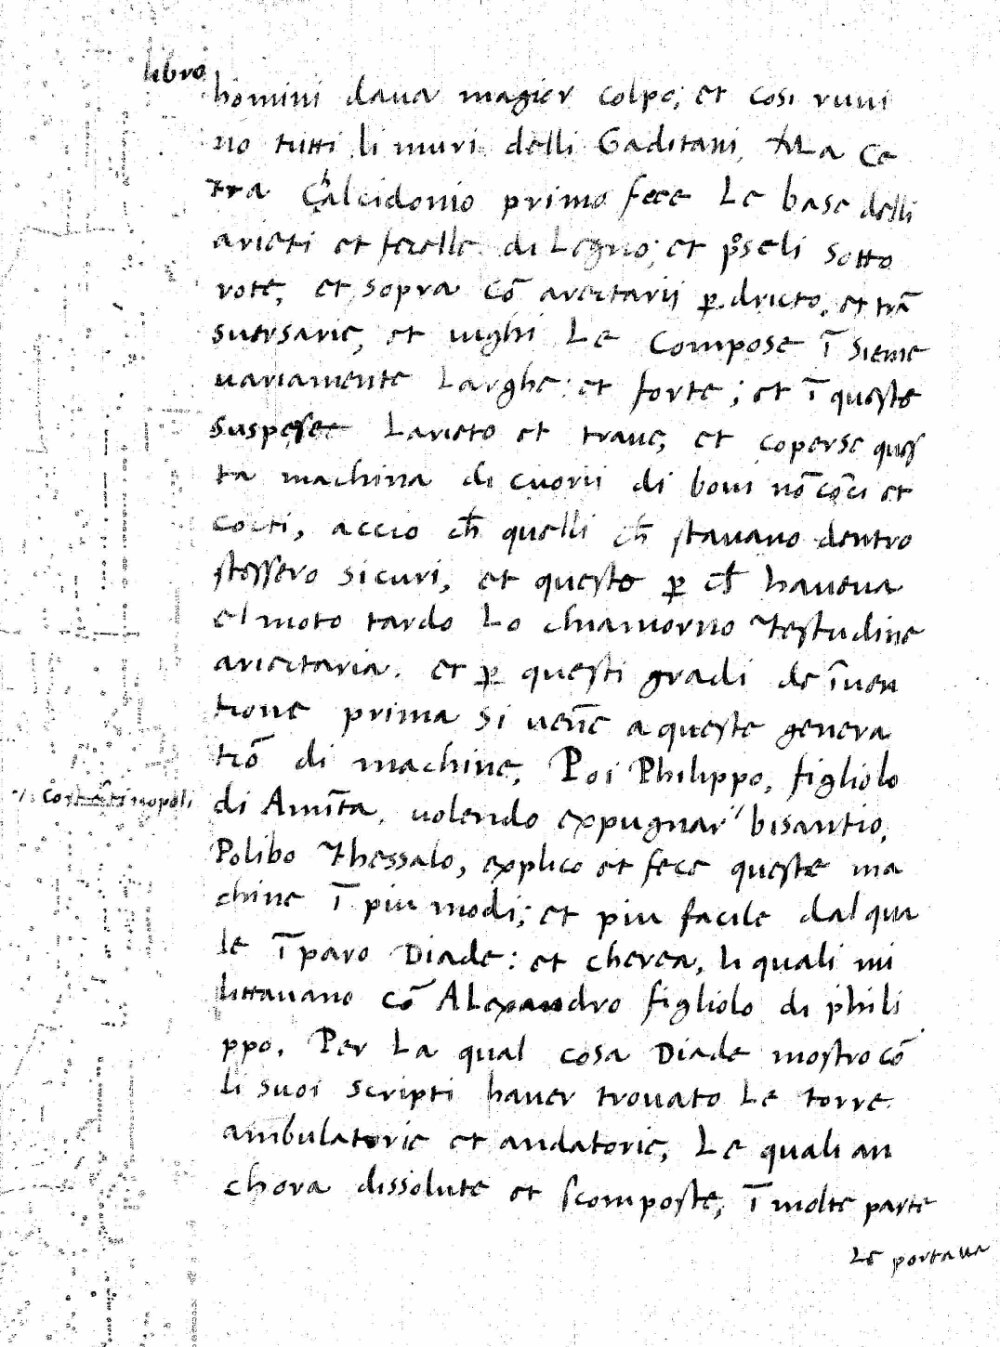 libro
homini dava magior colpo; et cosi ruvi
no tutti li muri delli Gaditani, Ma Ce
tra Chalcidonio primo fece Le base delli
arieti et fecelle di Legno; et p̊seli sotto
rote, et sopra cō arectarij p. dricto, et trā
suersarie, et iughi Le Compose ī sieme
uariamente Larghe: et forte; et ī queste
suspese Larieto et traue, et coperse ques
ta machina di cuorii di boui nō cōci et
cocti, accio ch̄ quelli ch̄ stauano dentro
stessero sicuri, et questo p̱ ch̄ haueua
el moto tardo Lo chiamorno Testudine
arietaria. et p̱ questi gradi de īuen
tione prima si uen̄e a queste genera
tiō di machine, Poi Philippo, figliolo
di Amīta, uolendo expugnar' bisantio,
Costātinopoli
Polibo Thessalo, explico et fece queste ma
chine ī piu modi; et piu facile dal qua
le ī paro Diade: et cherea, li quali mi
littauano cō ALexandro figliolo di phili
ppo. Per La qual cosa Diade mostro cō
li suoi scripti hauer trouato Le torre
ambulatorie et andatorie, Le quali an
chora dissolute et scomposte, ī molte parte
Le portaua